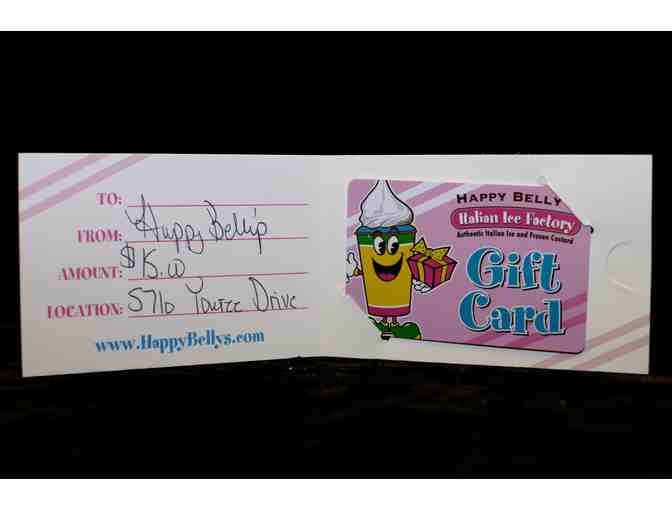 TO:
FROM: Happy Belly's
AMOUNT: $15.00
LOCATION: 5716 Youree Drive
www.HappyBellys.com
HAPPY BELLY
Italian Ice Factory
Authentic Italian Ice and Frozen Custard
Gift
Card